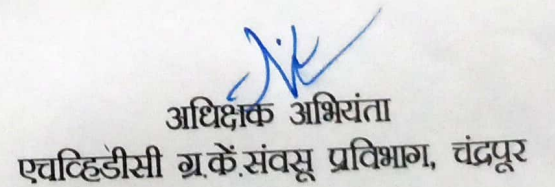 अधिक्षक अभियंता
एचव्हिडीसी ग्र.कें.संवसू प्रविभाग, चंद्रपूर